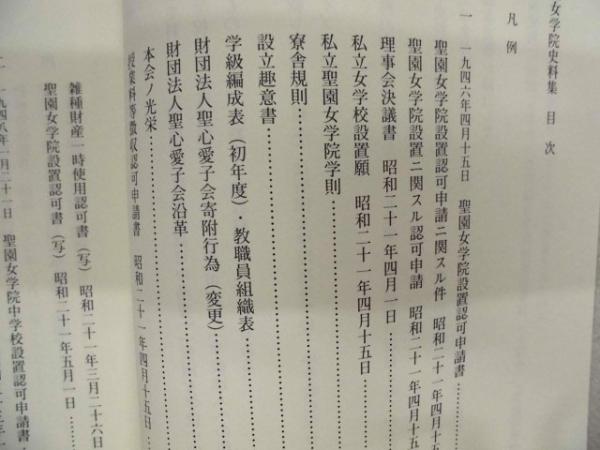 女学院史料集 目次
凡例
一 一九四六年四月十五日 聖園女学院設置認可申請書
聖園女学院設置認可申請ニ関スル件 昭和二十一年四月
聖園女学院設置ニ関スル認可申請 昭和二十一年四月十五
理事会決議書 昭和二十一年四月一日
私立女学校設置願 昭和二十一年四月十五日
私立聖園女学院学則
寮舎規則
設立趣意書
学級編成表（初年度）・教職員組織表
財団法人聖心愛子会寄附行為（変更）
財団法人聖心愛子会沿革
本会ノ光栄
授業料等徴収認可申請書 昭和二十一年四月十五日
雑種財産一時使用認可書（写） 昭和二十一年三月二十六日
聖園女学院設置認可書（写） 昭和二十一年五月一日
二 一九四八年一月二十一日 聖園女学院中学校設置認可申請書